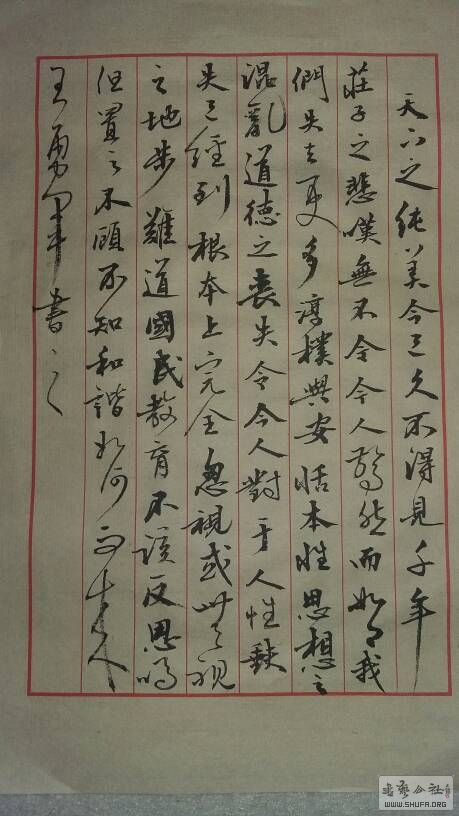 天下之纯美今已久不得見千年
莊子之悲嘆無不令今人驚然而如今我
們失去更多淳樸與安恬本性思想之
混亂道德之喪失令今人對于人性缺
失已經到根本上完全忽視或漠視
之地步難道國民教育不該反思嗎
但置之不顧不知和諧如何
書
書藝公社
WWW.SHUFA.ORG